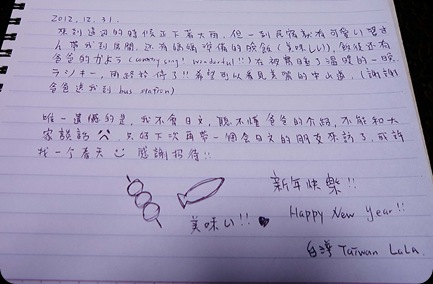 2012.12.31.
來到這邊的時候正下著大雨,但一到民宿就有可愛い喔さ
ん帶我到房間,還有媽媽準備的晚餐(美味しい),飯後還有
爸爸的カメラ(wonderful!!)在被窩睡了溫暖的一晚,
ラッキー,雨終於停了!!希望可以看見美麗的中山道。(謝謝
爸爸送我到bus station)
唯一遺憾的是,我不會日文,聽不懂爸爸的介紹,不能和大
家談話 只好下次再帶一個會日文的朋友來訪了,或許
找一个春天 感謝招待!!
美味い!!
新年快樂!!
Happy New Year!!
台灣 Taiwan LuLu.